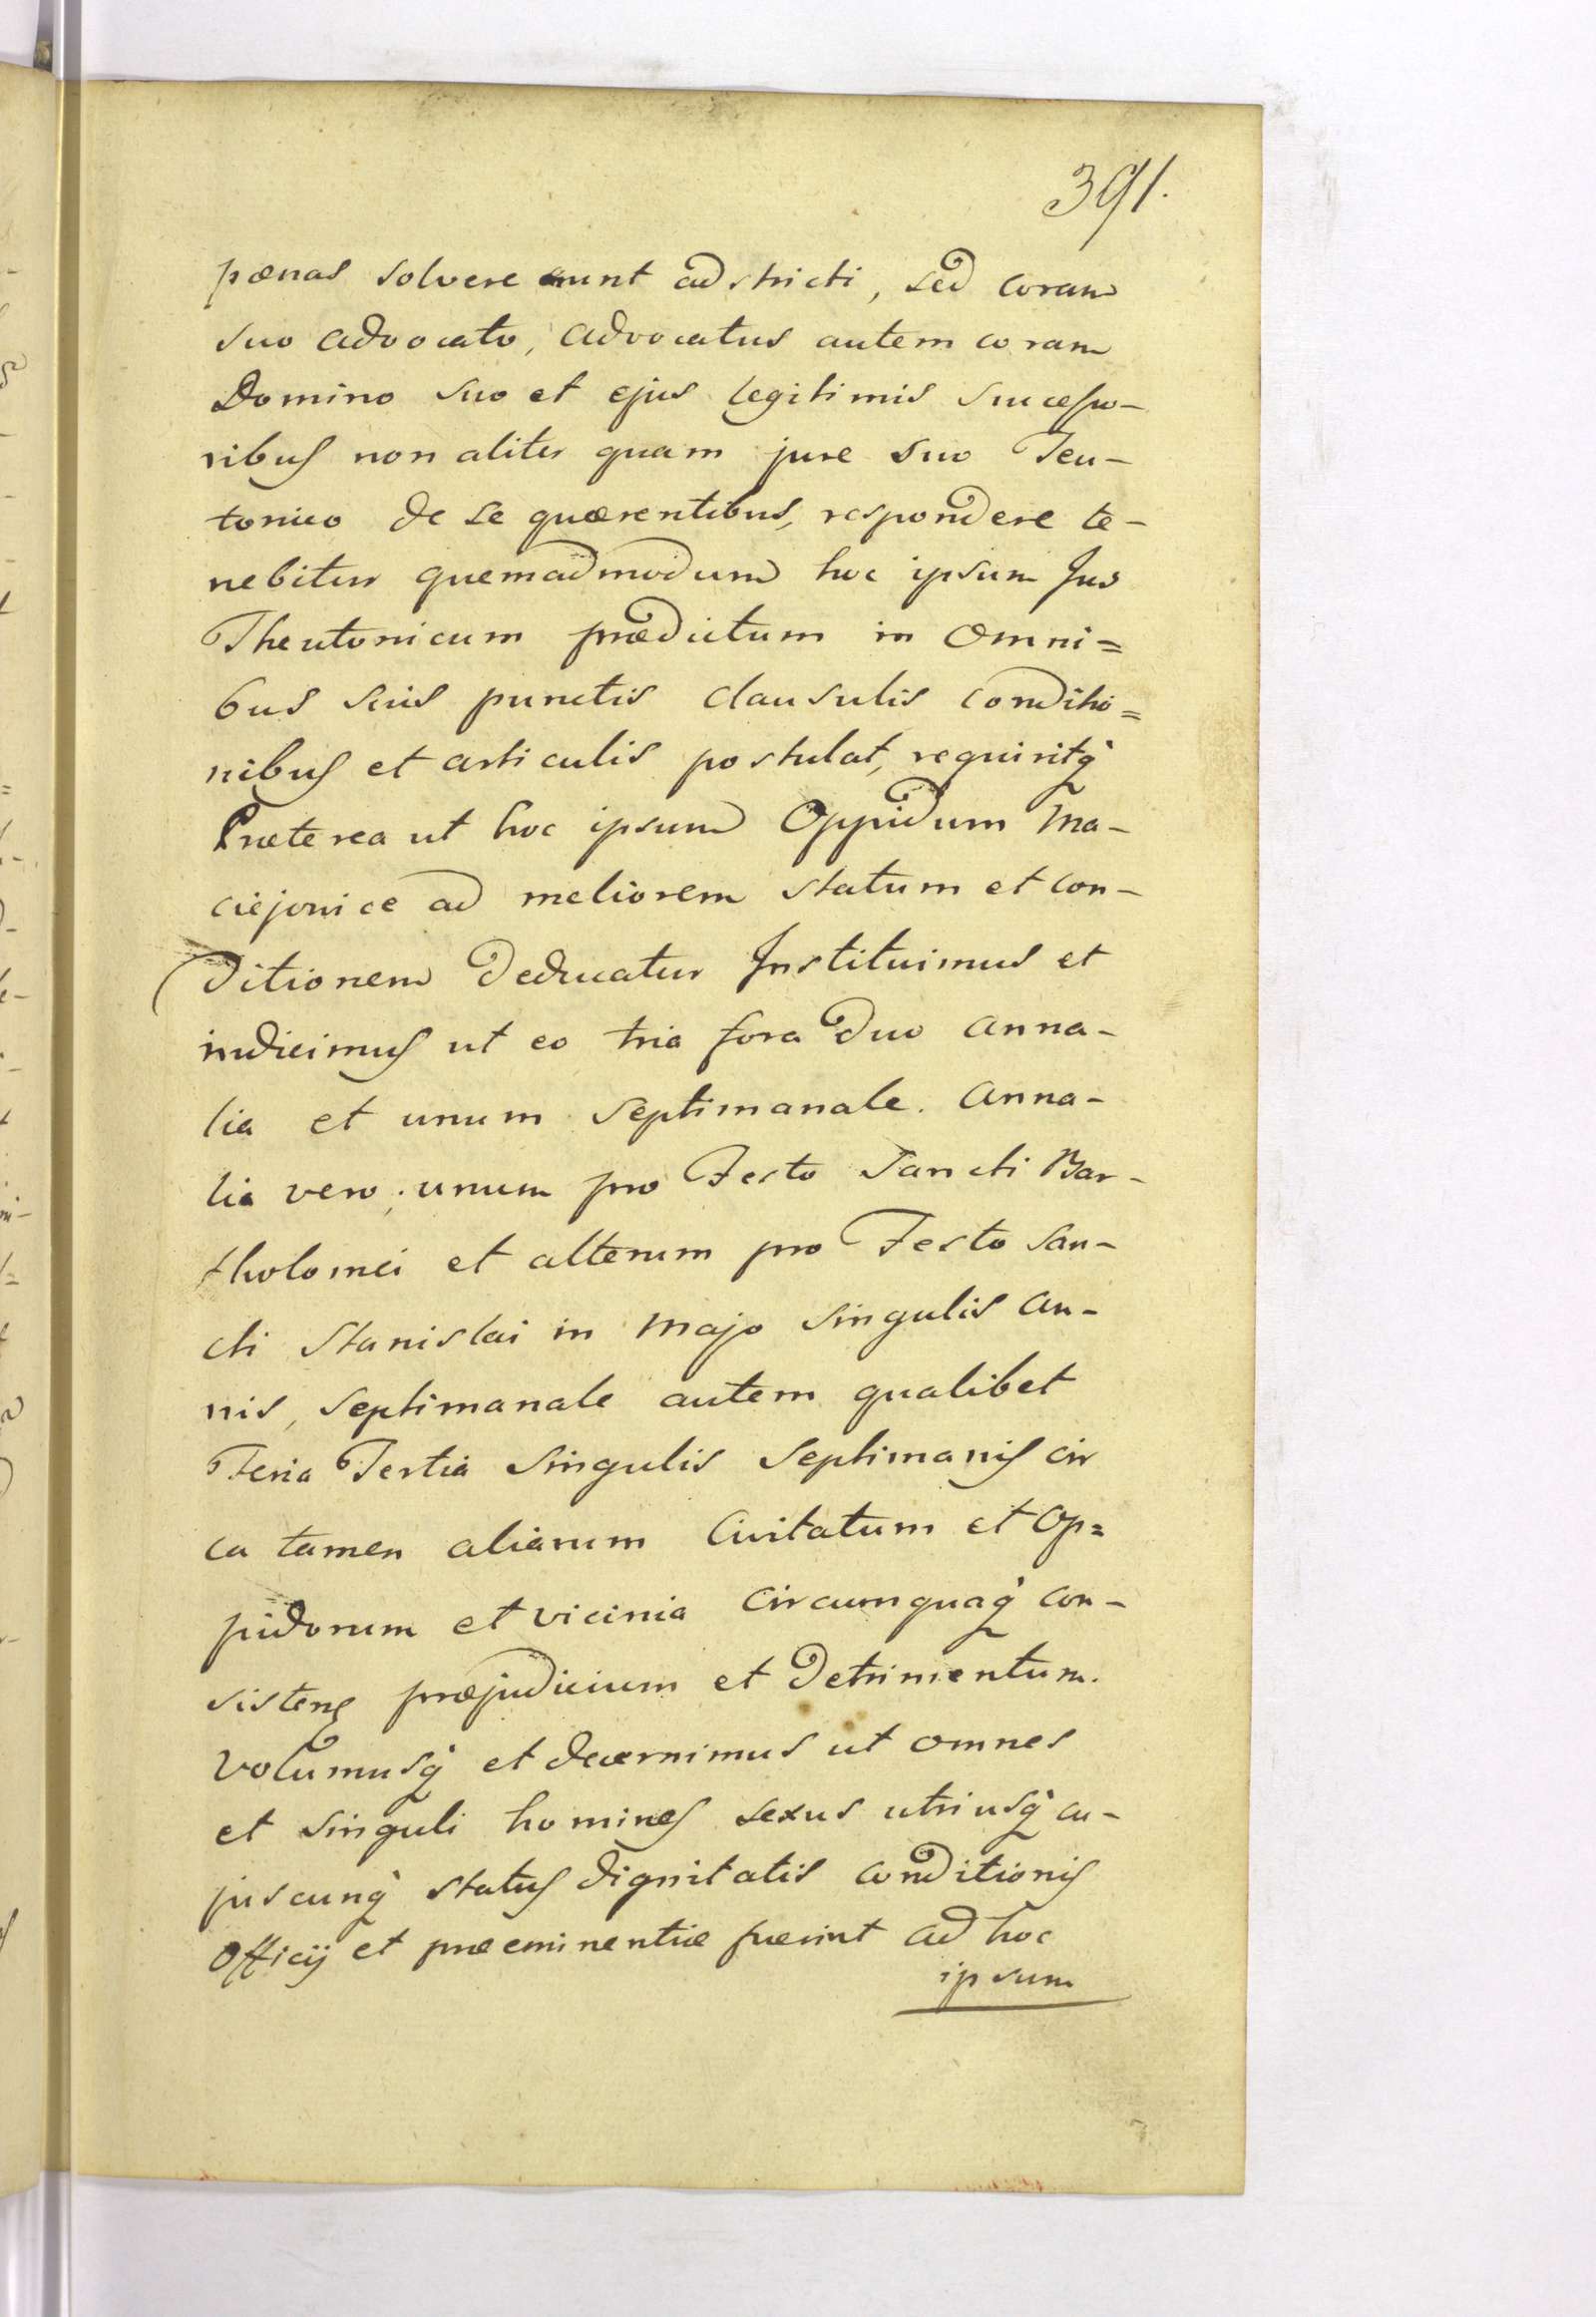 391.
pœnas solvere erunt adstricti, sed coram
suo advocato, advocatus autem coram
Domino suo et ejus legitimis successo-
ribus non aliter quam jure suo Teu-
tonico de se quærentibus, respondere te-
nebitur quemadmodum hoc ipsum Jus
Theutonicum prædictum in omni=
bus suis punctis clausulis conditio=
nibus et articulis postulat, requiritq́
Præterea ut hoc ipsum Oppidum Ma-
ciejovice ad meliorem statum et con-
ditionem deducatur Instituimus et
indicimus ut eo tria fora duo anna-
lia et unum septimanale. Anna-
lia vero; unum pro Festo Sancti Bar-
tholomei et alterum pro Festo San-
cti Stanislai in Majo singulis an-
nis, septimanale autem qualibet
Feria Tertia singulis septimanis cir
ca tamen aliarum Civitatum et Op=
pidorum et vicinia circumquaq́ con-
sistens præjudicium et detrimentum.
Volumusq́ et decernimus ut omnes
et singuli homines sexus utriusq́ cu-
juscunq́ status dignitatis conditionis
Officij et præeminentiæ fuerint ad hoc
ipsum